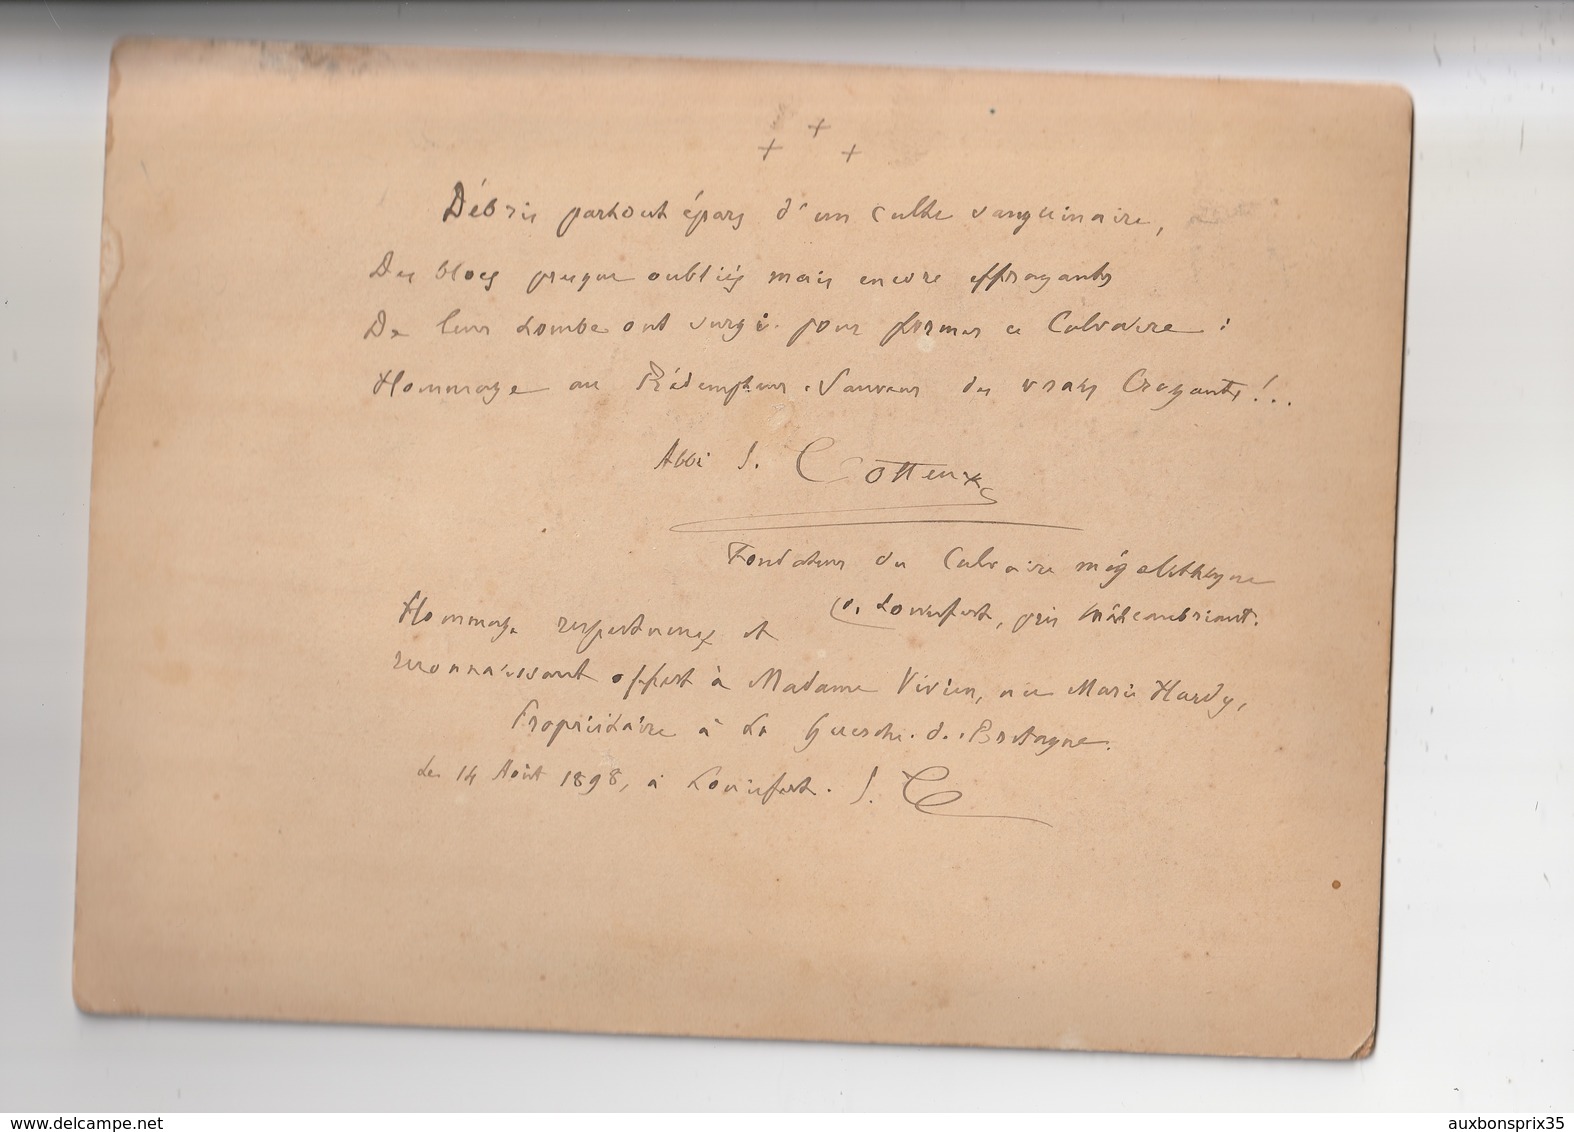 + + +
Débris partout épars d'un culte sanguinaire,
Des blocs presque oubliés mais encore effrayants
De leur tombe ont surgi pour former ce Calvaire :
Hommage au Rédempteur, Sauveur des vrais Croyants !..
Abbé J. Cotteux
Fondateur du Calvaire mégalithique
de Louisfert, près Châteaubriant.
Hommage respectueux et
reconnaissant offert à Madame Vivien, née Marie Hardy,
Propriétaire à La Guerche-de-Bretagne.
Le 14 Août 1898, à Louisfert. J. C
www.delcampe.net
auxbonsprix35